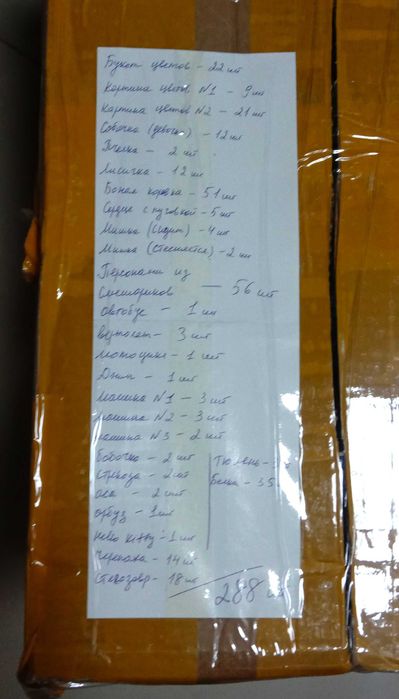 Букет цветов - 22 шт
Картина цветы №1 - 9 шт
Картина цветов №2 - 21 шт
Собачка (девочка) - 12 шт
Пчелка - 2 шт
Лисичка - 12 шт
Божья коровка - 51 шт
Сердце с пуговкой - 5 шт
Мишка (сидит) - 4 шт
Мишка (стесняется) - 2 шт
Персонажи из
Смешариков — 56 шт
автобус - 1 шт
вертолет - 3 шт
мотоцикл - 1 шт
- 1 шт
машина №1 - 3 шт
машина №2 - 3 шт
машина №3 - 2 шт
бабочка - 2 шт
стрекоза - 2 шт
оса - 2 шт
арбуз - 1 шт
Hello Kitty - 1 шт
Черепаха - 14 шт
Стегозавр - 18 шт
Тюлень -
Белка - 35
288 шт